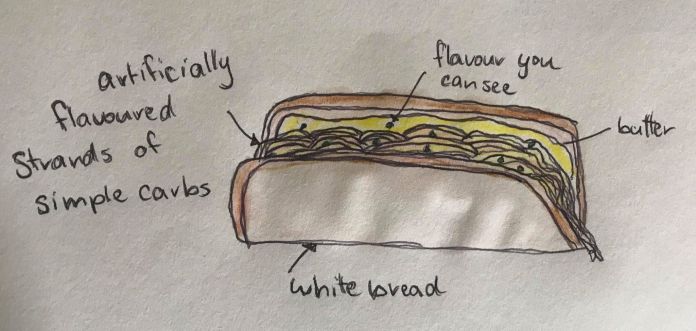 artificially
flavoured
Strands of
simple carbs
flavour you
can see
butter
white bread